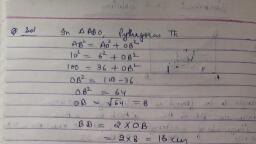 Sol In △ABO, Pythagoras Th
AB² = AO² + OB²
10² = 6² + OB²
100 = 36 + OB²
OB² = 100 - 36
OB² = 64
OB = √64 = 8
BD = 2 × OB
= 2×8 = 16 cm